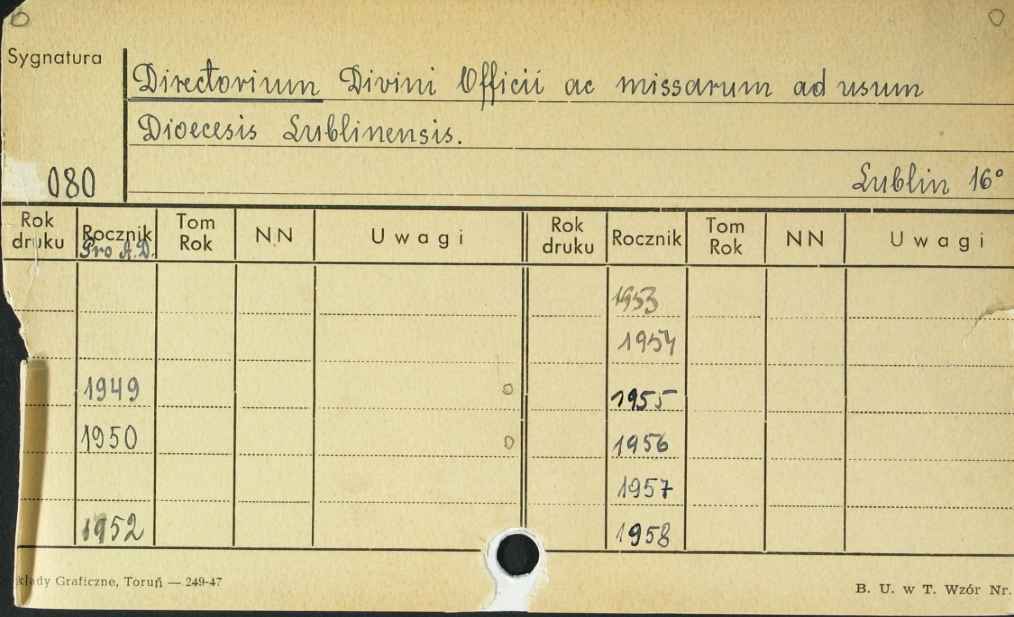 Sygnatura
Directorium Divini Officii ac missarum ad usum
Dioecesis Lublinensis.
080
Lublin 16°
Rok druku Rocznik Pro A.D. Tom Rok NN Uwagi Rok druku Rocznik Tom Rok NN Uwagi
1953
1954
1949 1955
1950 1956
1957
1952 1958
kłady Graficzne, Toruń — 249-47
B. U. w T. Wzór Nr.